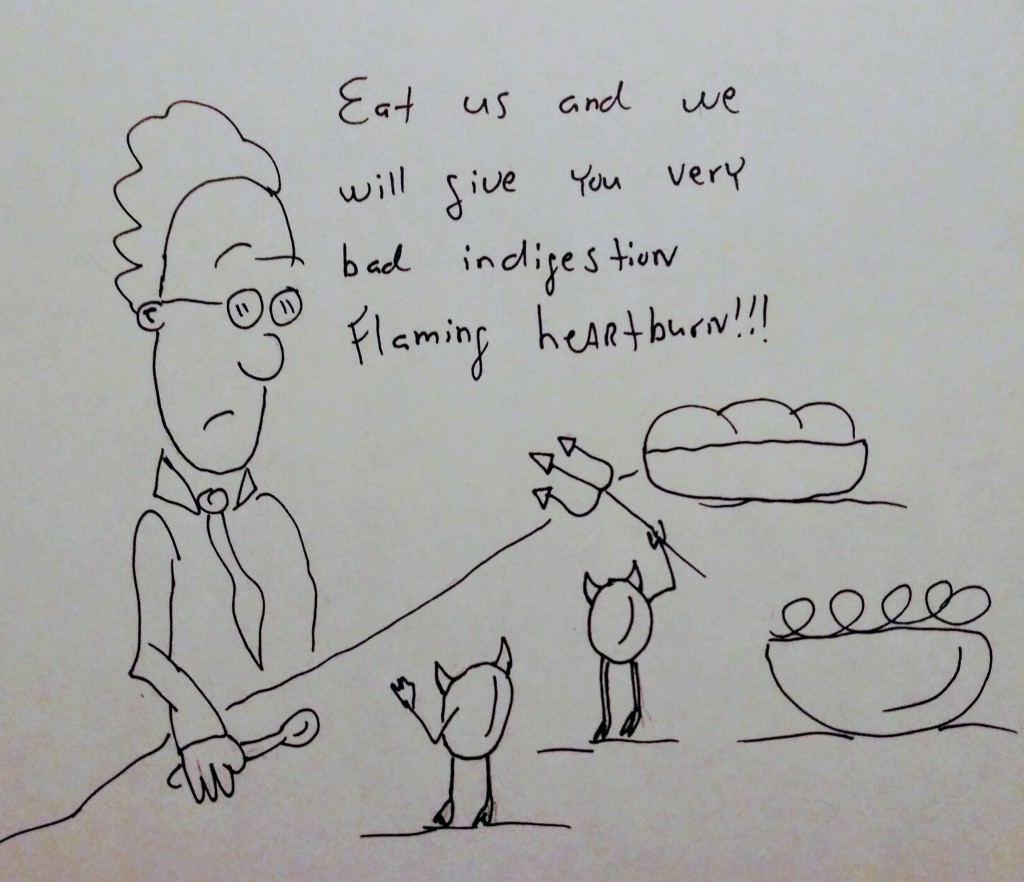 Eat us and we
will give you very
bad indigestion
Flaming heARtburn!!!